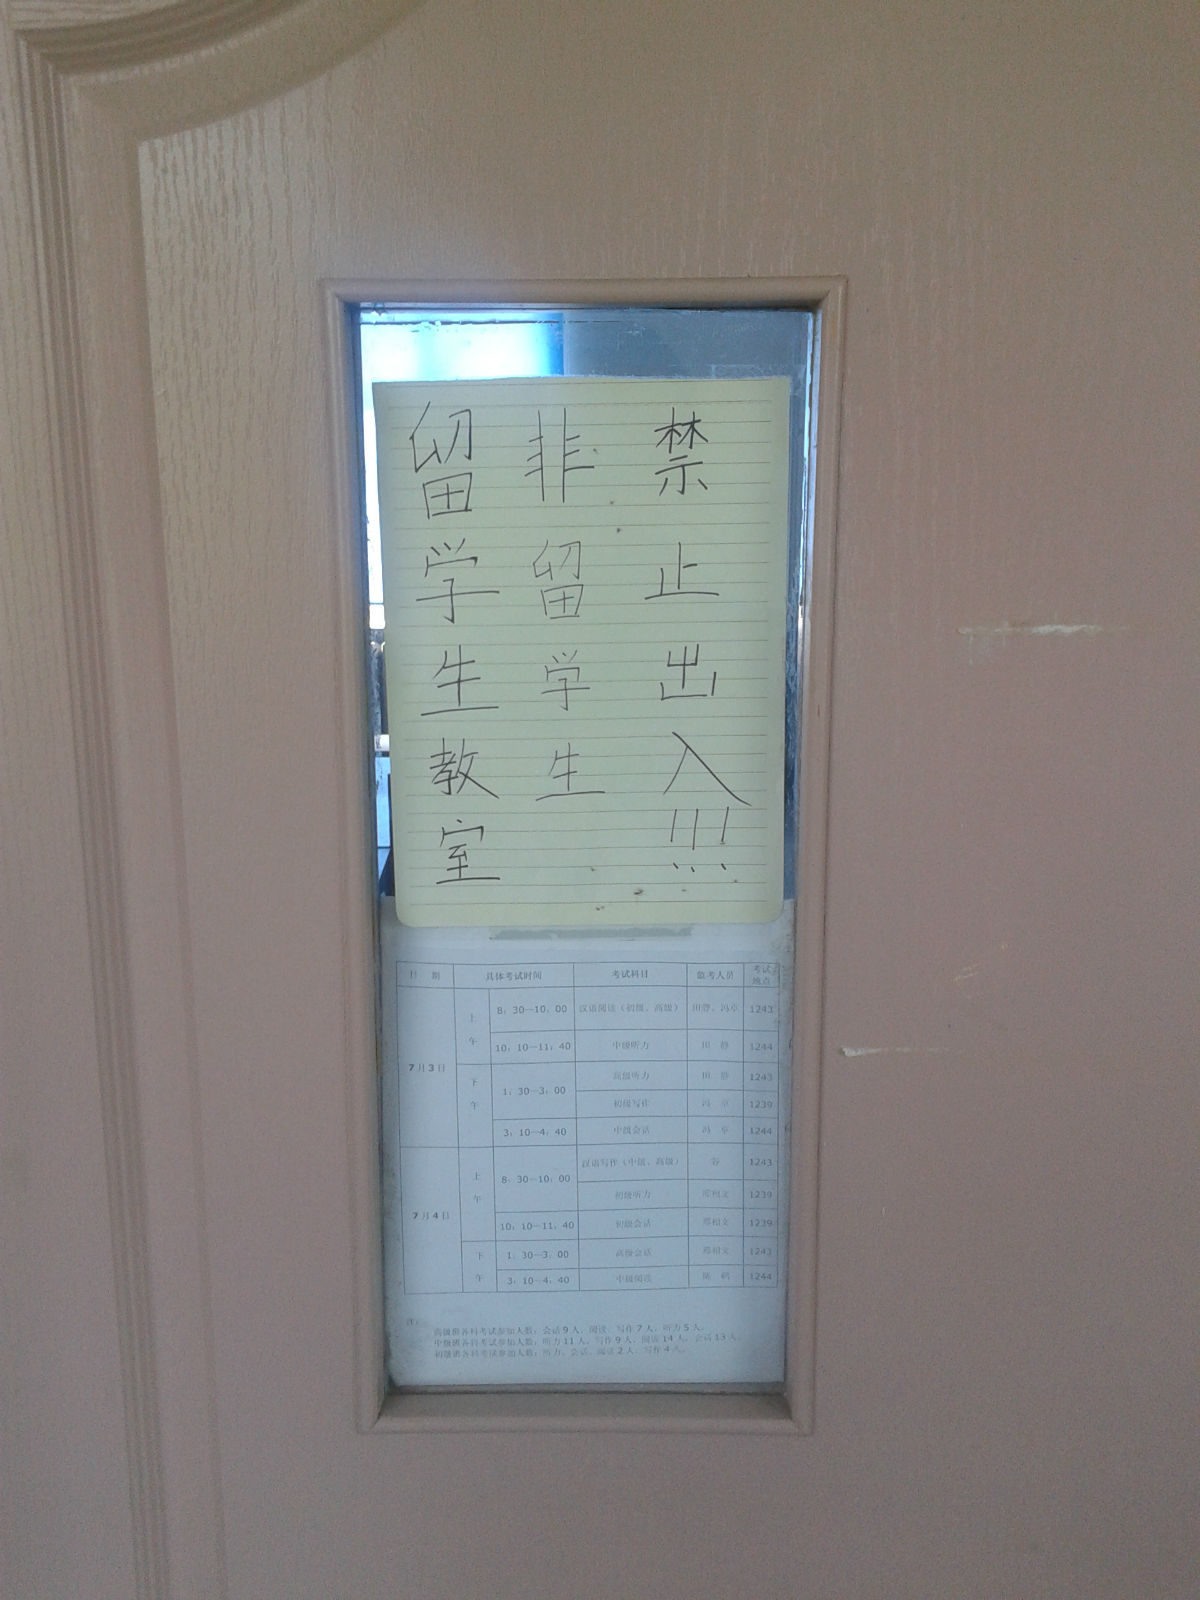 留学生教室
非留学生
禁止出入!!!
日 期 具体考试时间 考试科目 监考人员 考试地点
7月3日 上午 8：30—10：00 汉语阅读（初级、高级） 1243
10：10—11：40 中级听力 田 静 1244
下午 1：30—3：00 高级听力 田 静 1243
初级写作 冯 卓 1239
3：10—4：40 中级会话 冯 卓 1244
7月4日 上午 8：30—10：00 汉语写作（中级、高级） 1243
初级听力 邢相文 1239
10：10—11：40 初级会话 邢相文 1239
下午 1：30—3：00 高级会话 邢相文 1243
3：10—4：40 中级阅读 1244
注：
高级班各科考试参加人数：会话9人，阅读、写作7人，听力5人。
中级班各科考试参加人数：听力11人，写作9人，阅读14人，会话13人。
初级班各科考试参加人数：听力、会话、阅读2人，写作4人。